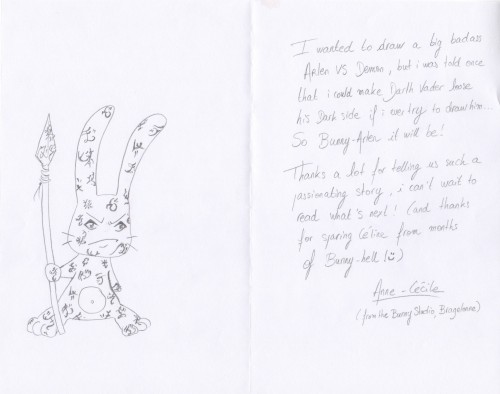 I wanted to draw a big badass
Arlen VS Demon, but i was told once
that i could make Darth Vader loose
his Dark side if i ever try to draw him...
So Bunny-Arlen it will be!
Thanks a lot for telling us such a
passionating story, i can't wait to
read what's next! (and thanks
for sparing Céline from months
of Bunny-hell!)
Anne-Cécile
(from the Bunny Studio, Bragelonne)